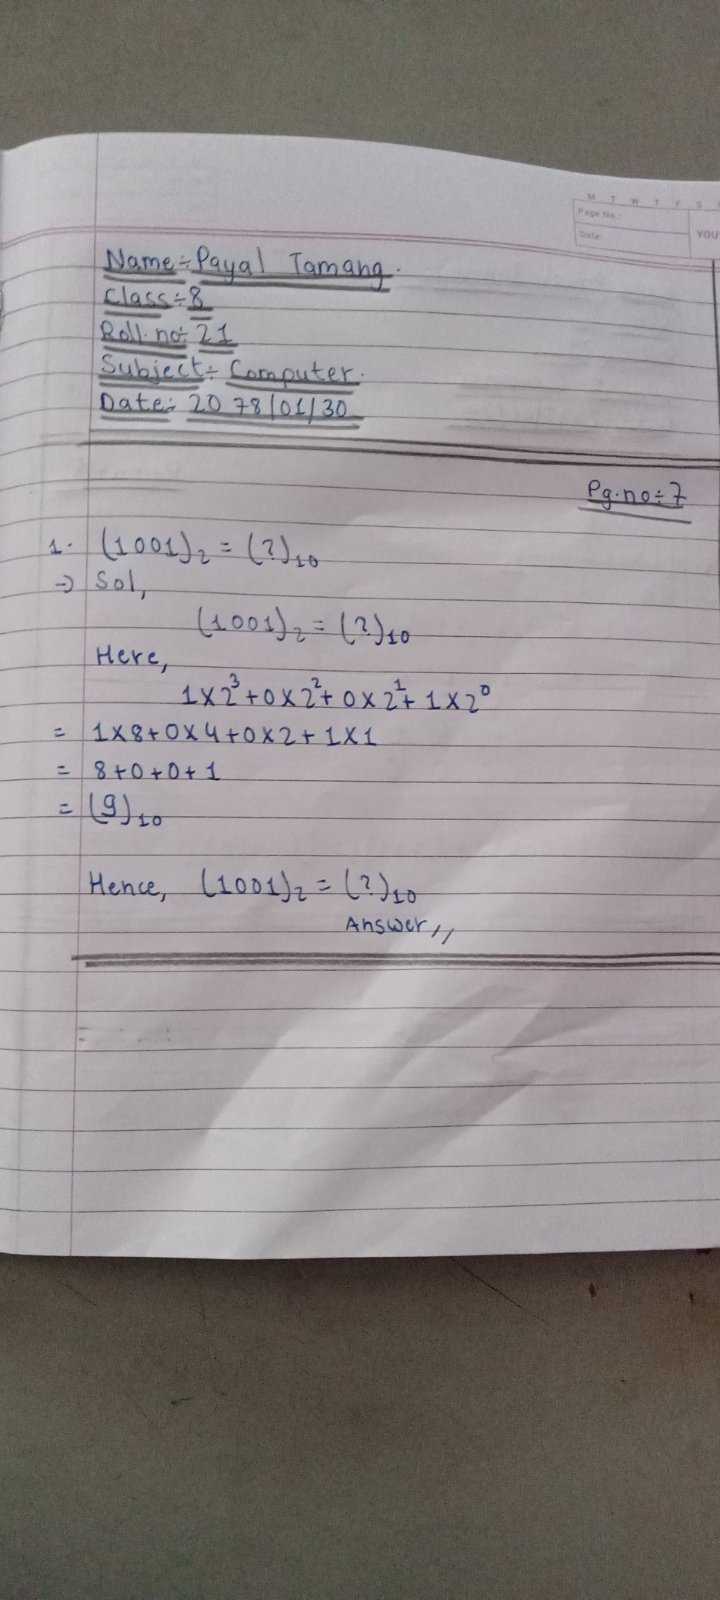 M T W T F S
Page No.:
Date:
YOU
Name:- Payal Tamang.
Class:- 8
Roll.no:- 21
Subject:- Computer.
Date:- 2078/01/30
Pg.no:- 7
1. (1001)₂ = (?)₁₀
→ Sol,
(1001)₂ = (?)₁₀
Here,
1×2³+0×2²+0×2¹+1×2⁰
= 1×8+0×4+0×2+1×1
= 8+0+0+1
= (9)₁₀
Hence, (1001)₂ = (?)₁₀
Answer,,